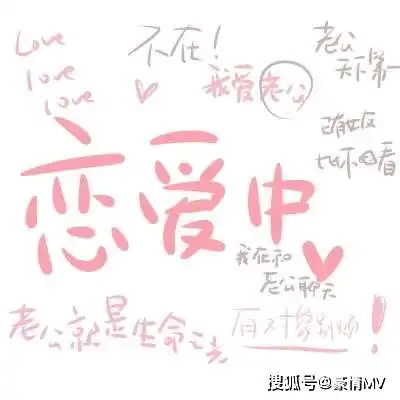 Love
love
love
不在！
我爱老公
老公
天下第一
已有女友
也不回看
恋爱中
我在和
老公聊天
老公就是生命之光
有对象别烦！
搜狐号@豪情MV